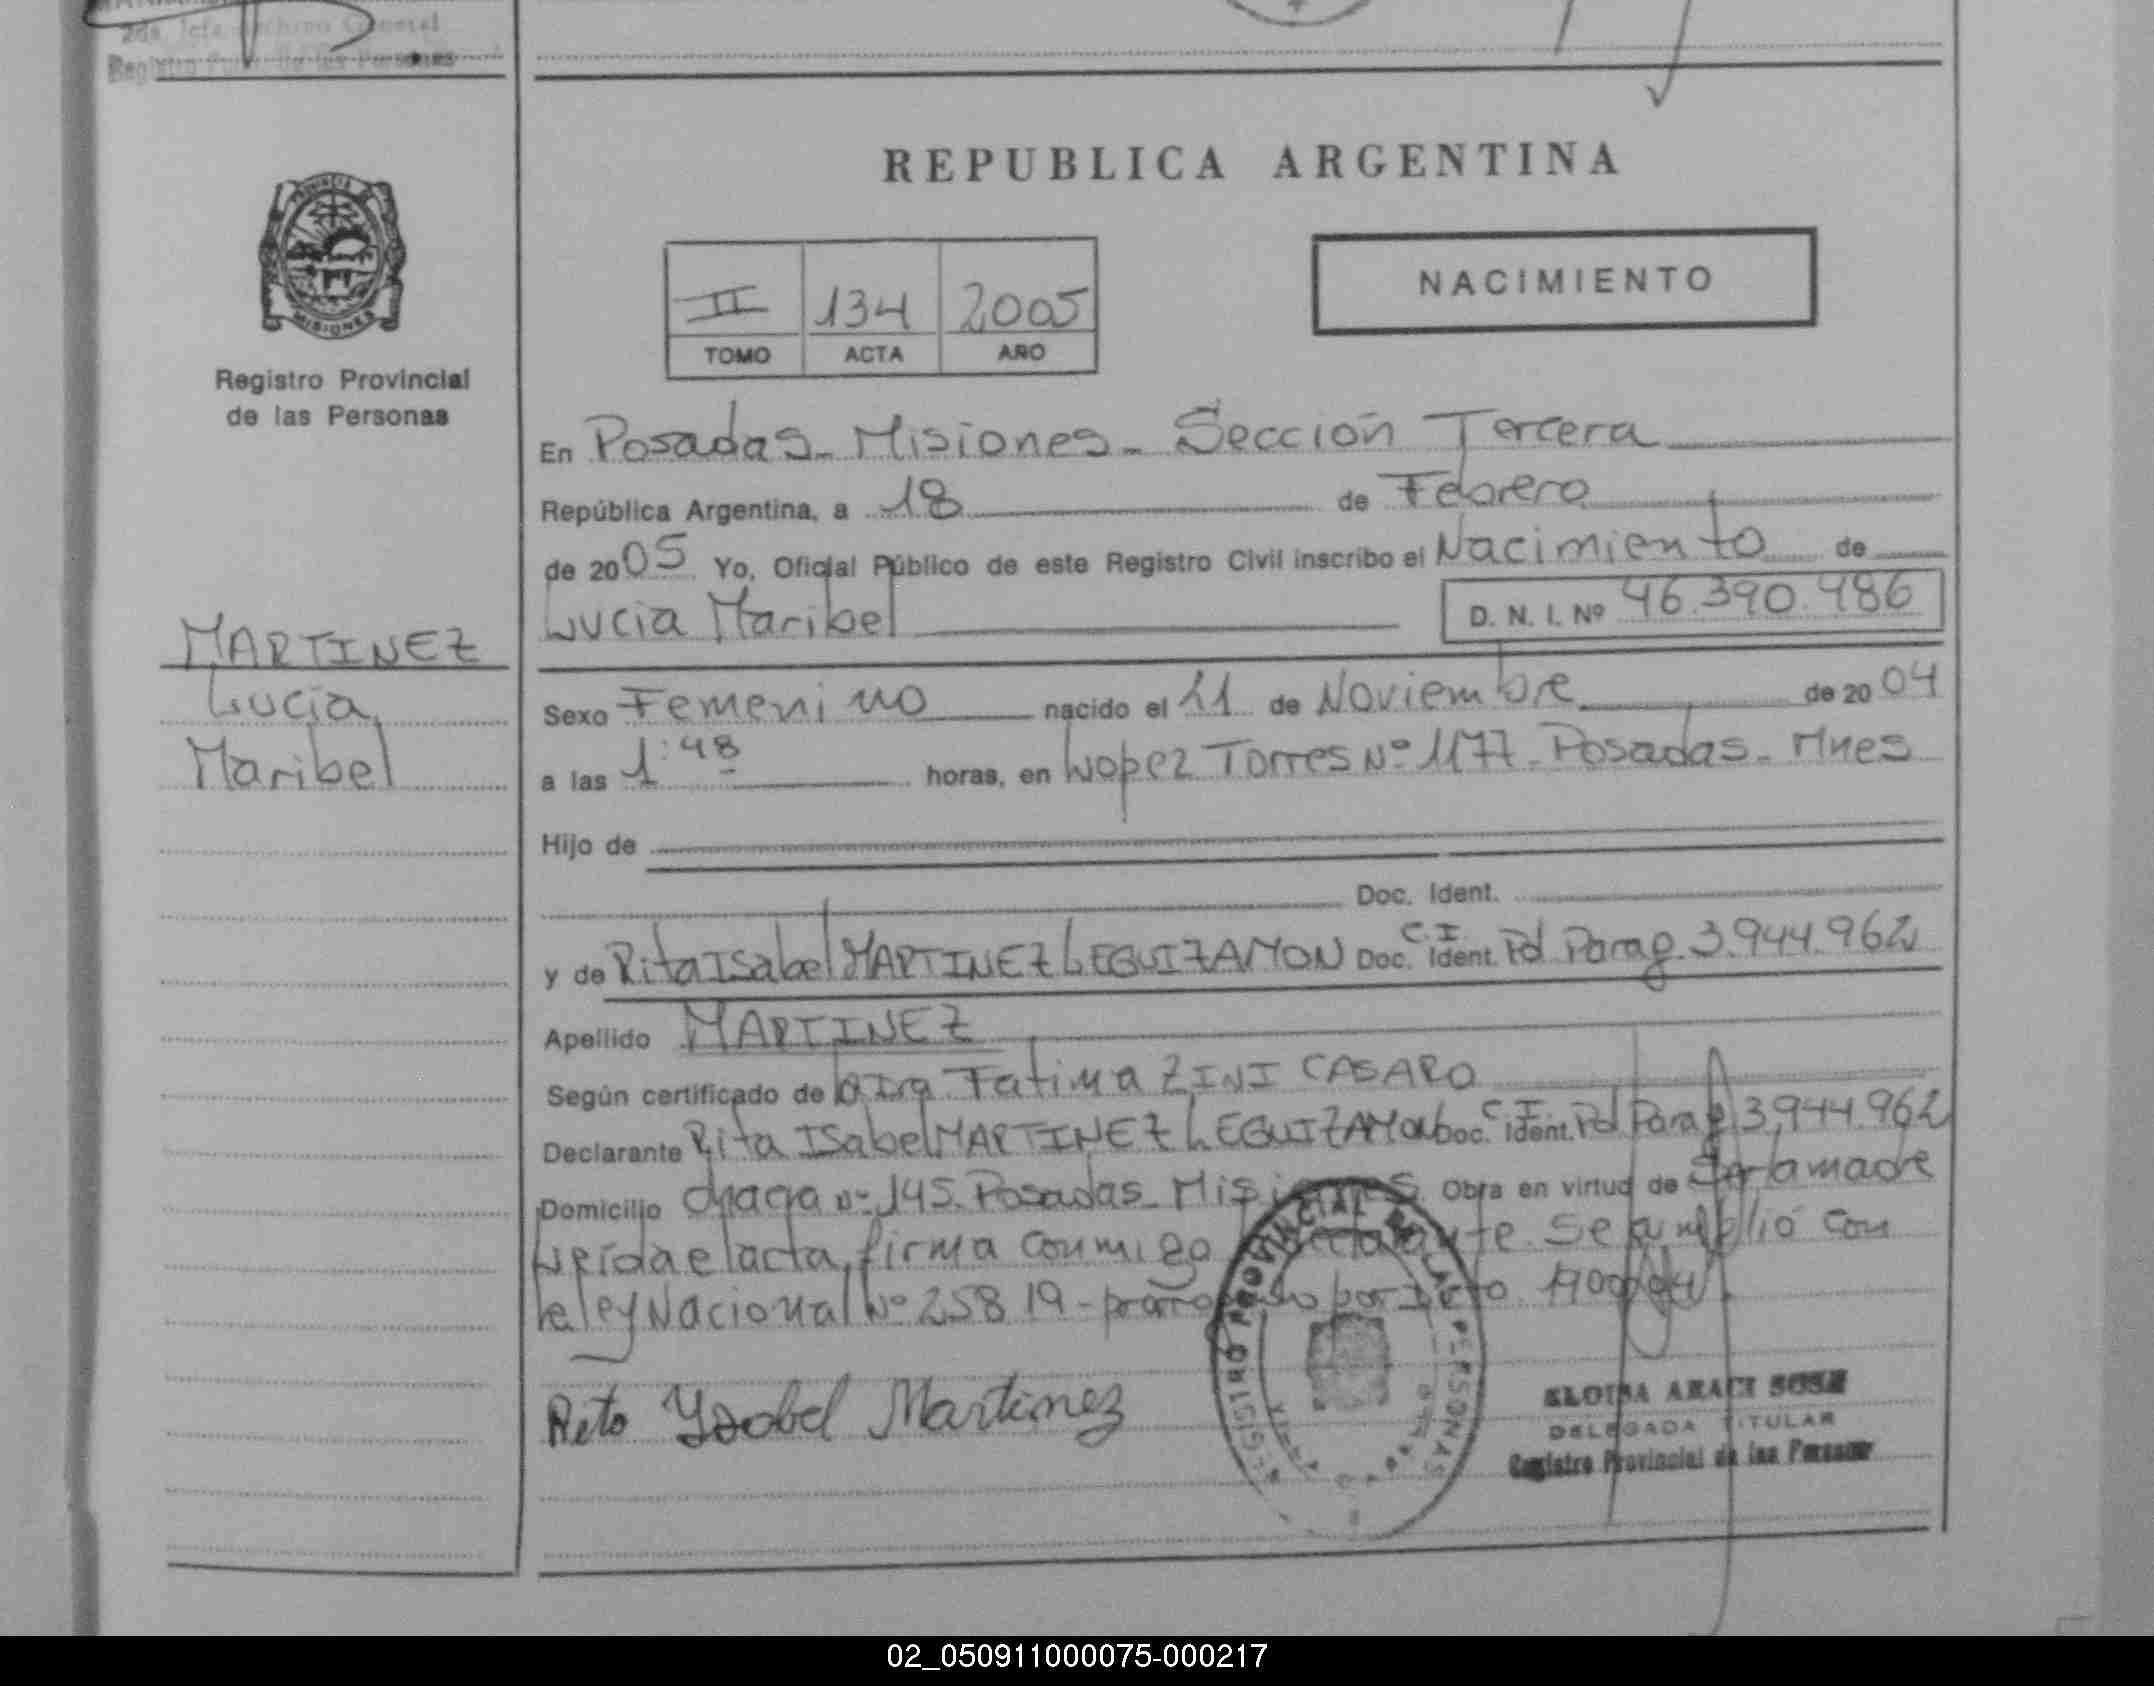 2da. Jefa Archivo General
Registro Prov. de las Personas
REPUBLICA ARGENTINA
PROVINCIA DE
MISIONES
Registro Provincial
de las Personas
II 134 2005
TOMO ACTA AÑO
NACIMIENTO
En Posadas - Misiones - Sección Tercera
República Argentina, a 18 de Febrero
de 2005 Yo, Oficial Público de este Registro Civil inscribo el Nacimiento de
Lucia Maribel D. N. I. Nº 46.390.486
MARTINEZ
Lucia
Maribel
Sexo Femenino nacido el 11 de Noviembre de 2004
a las 1:48 horas, en Lopez Torres Nº 1177 - Posadas - Mnes
Hijo de
Doc. Ident.
y de Rita Isabel MARTINEZ LEGUIZAMON Doc. Ident. C.I. Pol Parag. 3.944.962
Apellido MARTINEZ
Según certificado de la Dra Fatima ZINI CASARO
Declarante Rita Isabel MARTINEZ LEGUIZAMON Doc. Ident. C.I. Pol Parag 3.944.962
Domicilio chaca Nº 145. Posadas - Misiones. Obra en virtud de Ser la madre
Leída el acta, firma conmigo declarante. Se cumplió con
la ley Nacional Nº 25819 - por
Rita Ysabel Martinez
REGISTRO PROVINCIAL DE LAS PERSONAS
ELOISA ARACI SOSA
DELEGADA TITULAR
Registro Provincial de las Personas
02_050911000075-000217